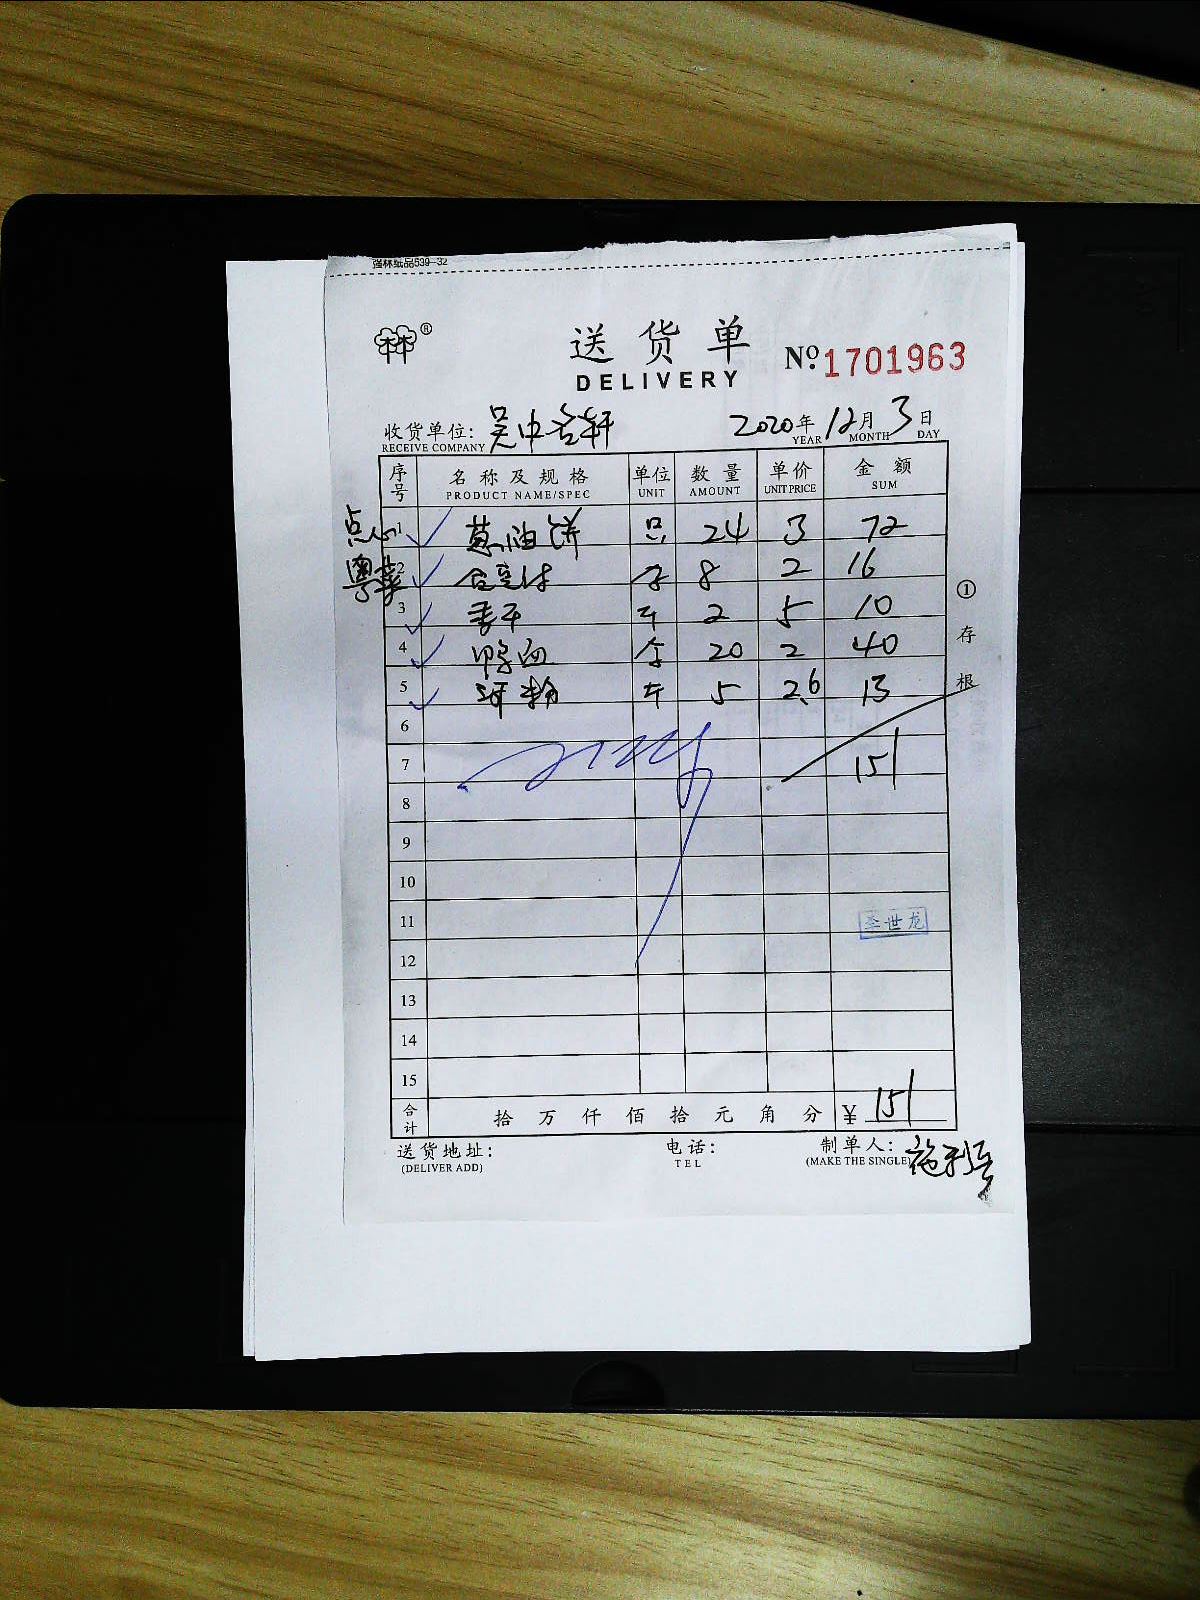 强林纸品539-32
林®
送货单
DELIVERY
Nº 1701963
收货单位: 吴中名轩 2020年12月3日
RECEIVE COMPANY YEAR MONTH DAY
序号 名称及规格 单位 数量 单价 金额
PRODUCT NAME/SPEC UNIT AMOUNT UNIT PRICE SUM
点心 1 葱油饼 只 24 3 72
粤菜 2 8 2 16
3 香干 斤 2 5 10
4 鸭血 伞 20 2 40
5 河粉 斤 5 2.6 13
6
7 151
8
9
10
11 李世龙
12
13
14
15
①存根
合计 拾万仟佰拾元角分 ¥ 151
送货地址: 电话: 制单人:
(DELIVER ADD) TEL (MAKE THE SINGLE)